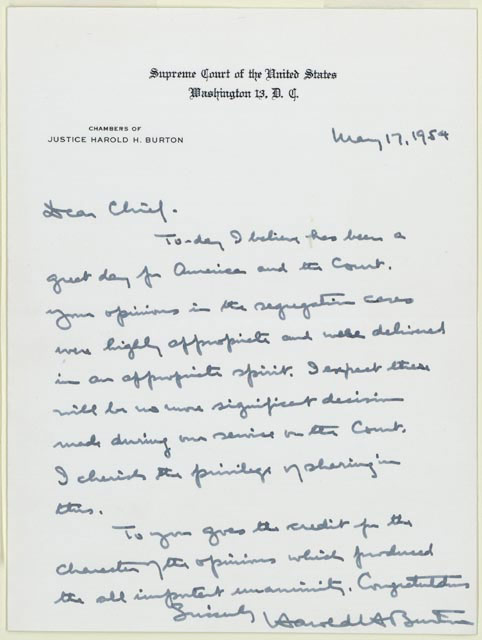 Supreme Court of the United States
Washington 13, D. C.
CHAMBERS OF
JUSTICE HAROLD H. BURTON
May 17, 1954
Dear Chief.
To-day I believe has been a
great day for America and the Court.
Your opinions in the segregation cases
were highly appropriate and well delivered
in an appropriate spirit. I expect there
will be no more significant decision
made during our service on the Court.
I cherish the privilege of sharing in
this.
To you goes the credit for the
character of the opinions which produced
the all important unanimity. Congratulations
Sincerely Harold H Burton